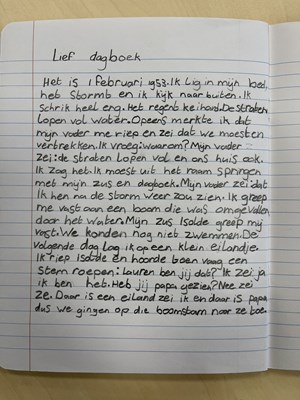 Lief dagboek
Het is 1 februari 1953. Ik lig in mijn bed,
het Stormt en ik kijk naar buiten. Ik
schrik heel erg. Het regent keihard. De straten
lopen vol water. Opeens merkte ik dat
mijn vader me riep en zei dat we moesten
vertrekken. Ik vroeg: waarom? Mijn vader
zei: de straten lopen vol en ons huis ook.
Ik zag het. Ik moest uit het raam springen
met mijn zus en dagboek. Mijn vader zei: dat
ik hen na de storm weer zou zien. Ik greep
me vast aan een boom die was omgevallen
door het water. Mijn zus Isolde greep mij
vast. We konden nog niet zwemmen. De
volgende dag lag ik op een klein eilandje.
Ik riep Isolde en hoorde boen vaag een
stem roepen: Lauren ben jij dat? Ik zei ja
ik ben het. Heb jij papa gezien? Nee zei
ze. Daar is een eiland zei ik en daar is papa
dus we gingen op die boomstam naar ze toe.